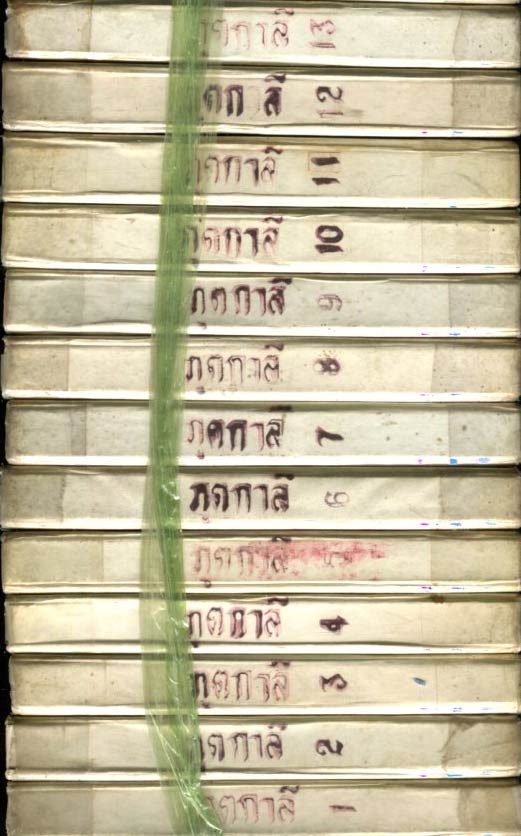 ภูตกาลี 13
ภูตกาลี 12
ภูตกาลี 11
ภูตกาลี 10
ภูตกาลี 9
ภูตกาลี 8
ภูตกาลี 7
ภูตกาลี 6
ภูตกาลี 5
ภูตกาลี 4
ภูตกาลี 3
ภูตกาลี 2
ภูตกาลี 1